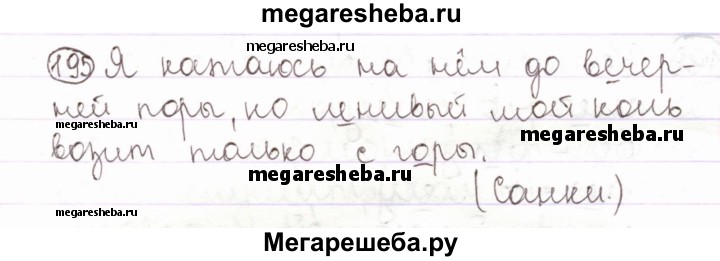 megaresheba.ru
megaresheba.ru
195 Я катаюсь на нём до вечер-
ней поры, но ленивый мой конь
megaresheba.ru
megaresheba.ru
возит только с горы.
megaresheba.ru
(Санки.)
megaresheba.ru
Мегарешеба.ру